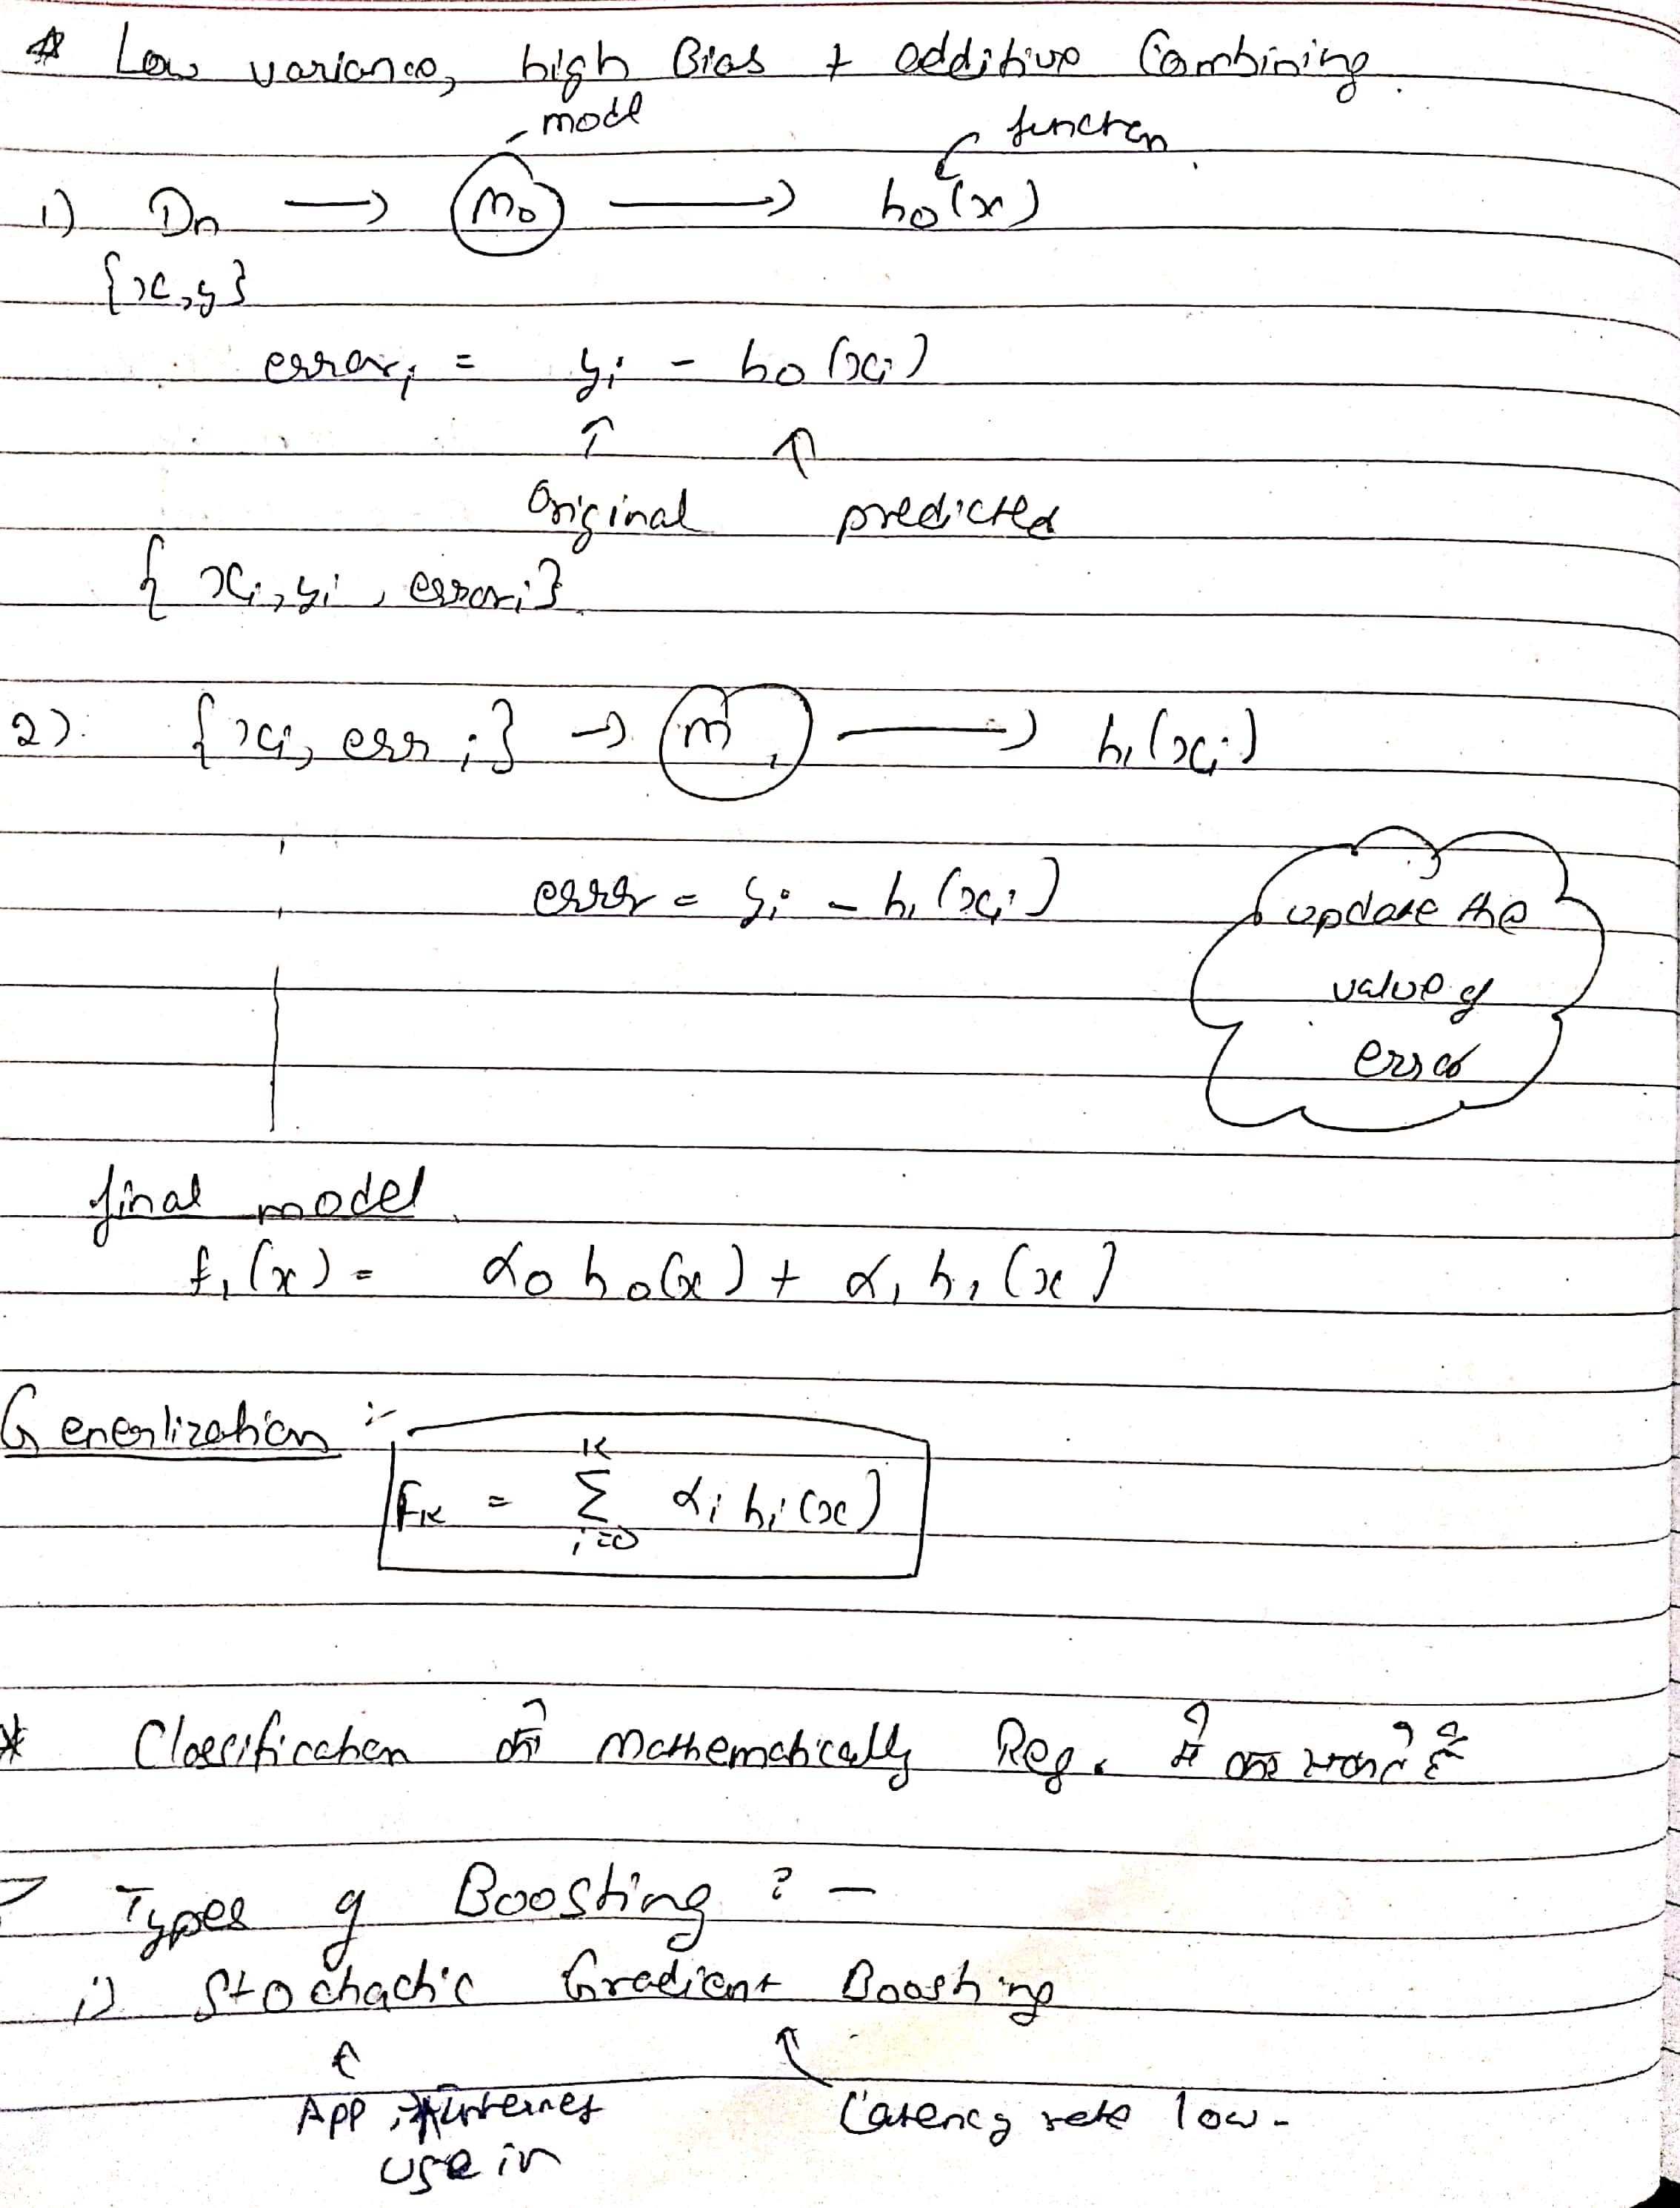 * Low variance, high Bias + additive Combining.
model
function
1) Dn → (m0) → h0(x)
{x, y}
errori = yi - h0(xi)
↑ ↑
Original predicted
{ xi, yi, errori}
2). {xi, erri} → (m1) → h1(xi)
err = yi - h1(xi)
update the
value of
error
final model
f1(x) = α0 h0(x) + α1 h1(x)
Generlization :-
Fk = Σ(i=0 to K) αi hi(x)
* Classification को Mathematically Reg. में
Types of Boosting ? -
i) Stochachic Gradient Boosting
App, internet
use in
Latency rate low -